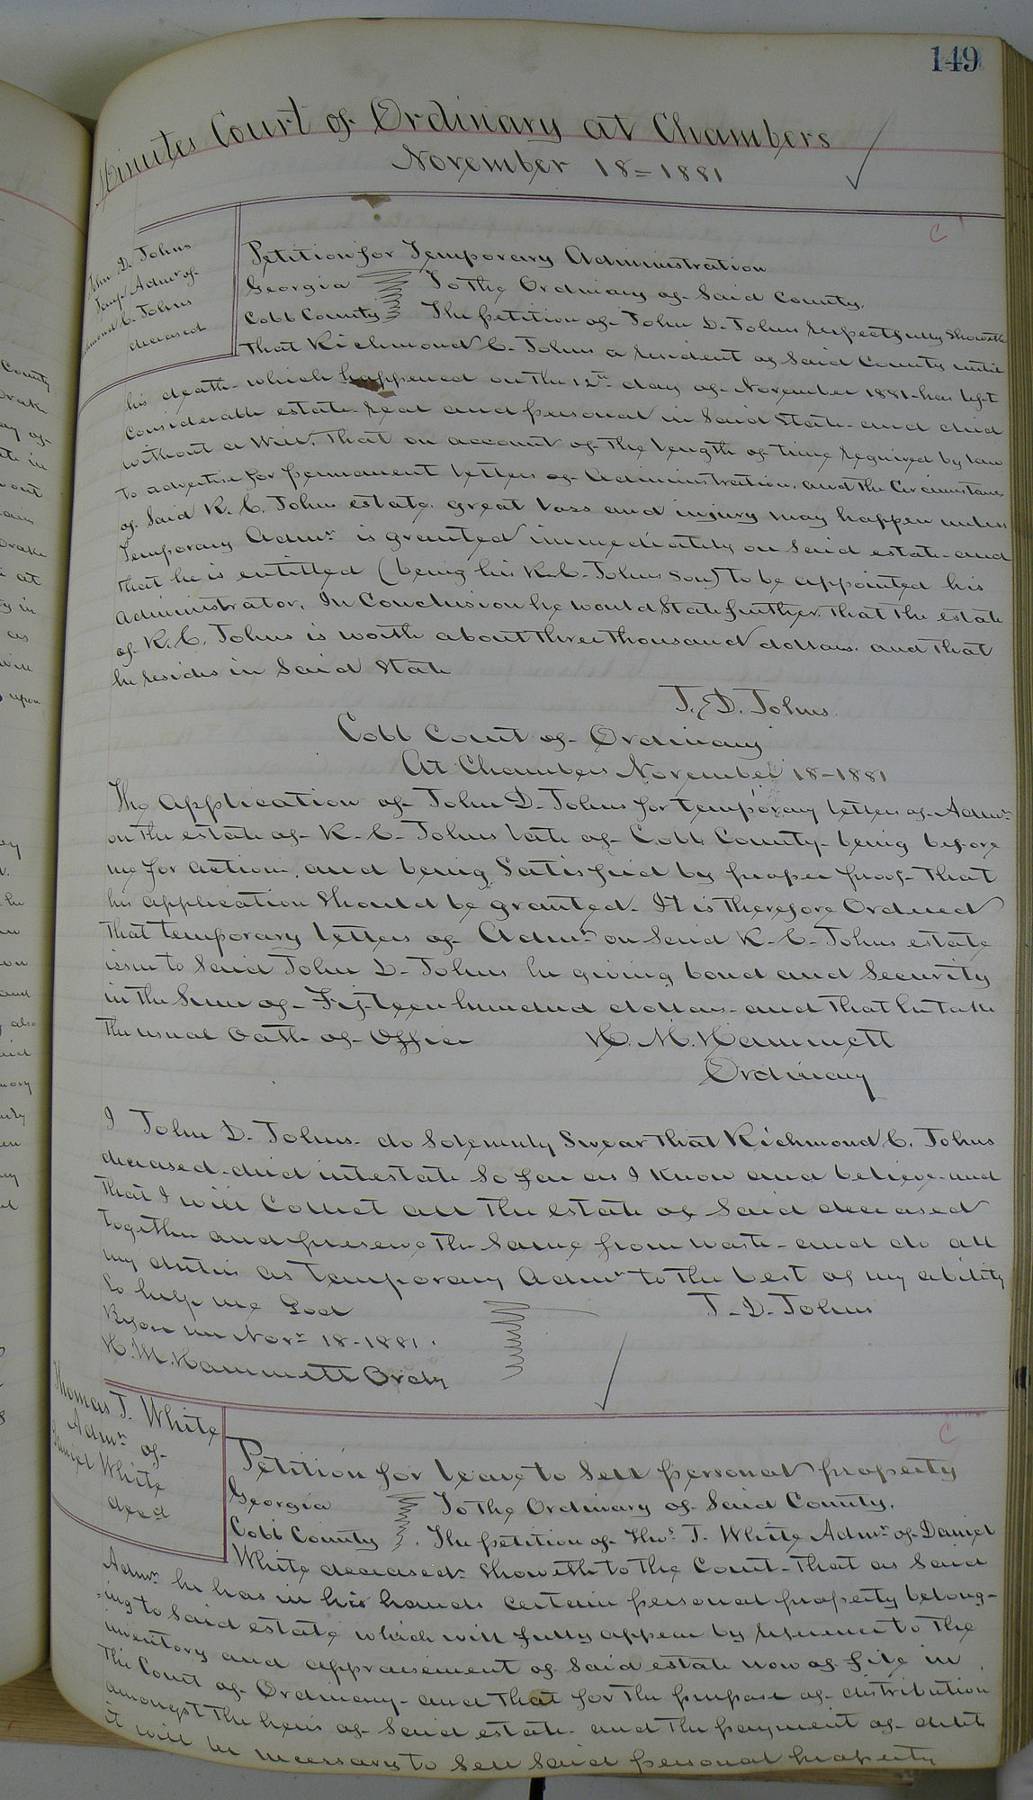 149
Minutes Court of Ordinary at Chambers
November 18 = 1881
John D. Johns
Temp Admr of
Richmond C. Johns
deceased
C
Petition for Temporary Administration
Georgia
Cobb County
To the Ordinary of Said County.
The petition of John D. Johns respectfully showeth
That Richmond C. Johns a resident of Said County until
his death which happened on the 12th day of November 1881 has left
Considerable estate real and personal in Said State and died
without a Will. That on account of the length of time required by law
to advertise for permanent letters of Administration, and the Circumstances
of Said R. C. Johns estate, great loss and injury may happen unless
Temporary Admr is granted immediately on Said estate and
that he is entitled (being his R. C. Johns son) to be appointed his
Administrator. In Conclusion he would State further that the estate
of R. C. Johns is worth about three thousand dollars. and that
he resides in Said State
J. D. Johns
Cobb Court of Ordinary
At Chambers November 18-1881
The application of John D. Johns for temporary letters of Admr
on the estate of R. C. Johns late of Cobb County being before
me for action, and being Satisfied by proper proof that
his application Should be granted. It is therefore Ordered
That temporary letters of Admr on Said R. C. Johns estate
issue to Said John D. Johns he giving bond and Security
in the Sum of Fifteen hundred dollars and that he take
the usual Oath of Office
H. M. Hammett
Ordinary
I John D. Johns do Solemnly Swear that Richmond C. Johns
deceased died intestate So far as I know and believe and
That I will Collect all the estate of Said deceased
together and preserve the Same from waste and do all
my duties as temporary Admr to the best of my ability
So help me God
J. D. Johns
Before me Novr 18-1881.
H. M. Hammett Ordy
Thomas J. White
Admr of
Daniel White
decd
C
Petition for leave to Sell personal property
Georgia
Cobb County
To the Ordinary of Said County.
The petition of Thos J. White Admr of Daniel
White deceased Showeth to the Court that as Said
Admr he has in his hands certain personal property belong-
-ing to Said estate which will fully appear by reference to the
inventory and appraisement of Said estate now of file in
The Court of Ordinary and that for the purpose of distribution
amongst the heirs of Said estate and the payment of debts
it will be necessary to Sell Said personal property